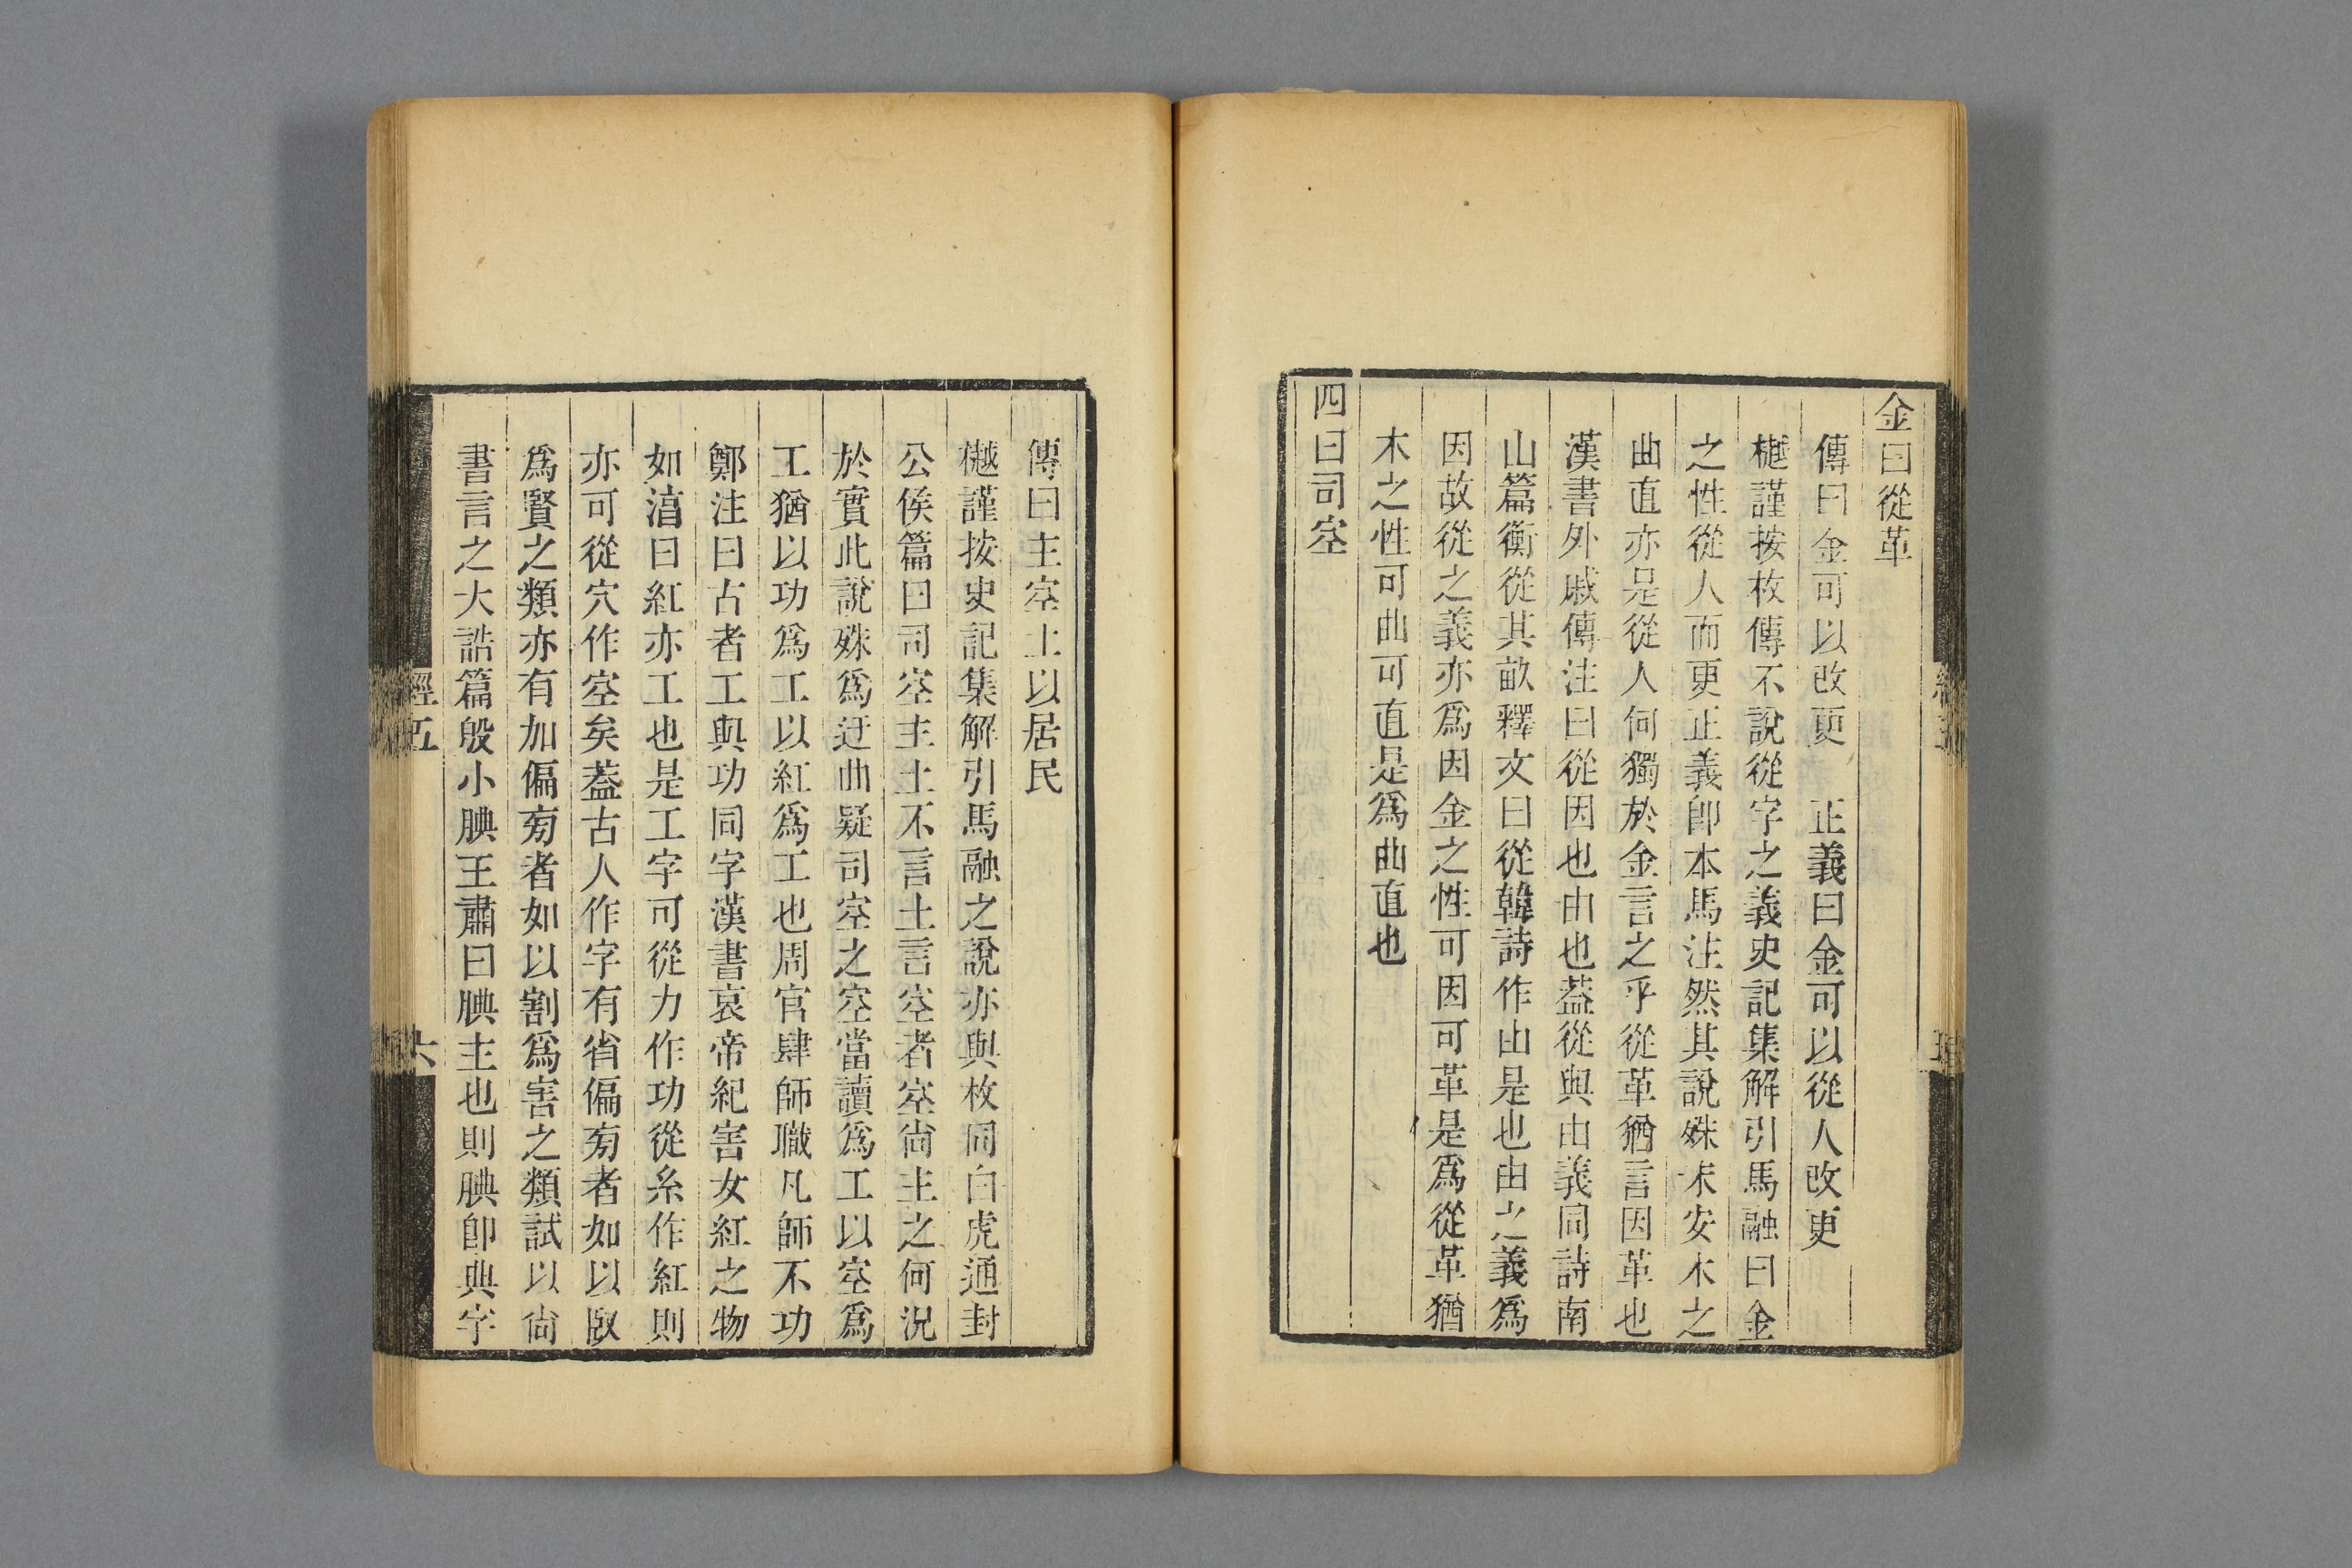 金曰從革
傳曰金可以改更　正義曰金可以從人改更
樾謹按枚傳不說從字之義史記集解引馬融曰金
之性從人而更正義卽本馬注然其說殊未安木之
曲直亦是從人何獨於金言之乎從革猶言因革也
漢書外戚傳注曰從因也由也葢從與由義同詩南
山篇衡從其畝釋文曰從韓詩作由是也由之義爲
因故從之義亦爲因金之性可因可革是爲從革猶
木之性可曲可直是爲曲直也
四曰司空
傳曰主空土以居民
樾謹按史記集解引馬融之說亦與枚同白虎通封
公侯篇曰司空主土不言土言空者空尙主之何況
於實此說殊爲迂曲疑司空之空當讀爲工以空爲
工猶以功爲工以紅爲工也周官肆師職凡師不功
鄭注曰古者工與功同字漢書哀帝紀害女紅之物
如湻曰紅亦工也是工字可從力作功從糸作紅則
亦可從穴作空矣葢古人作字有省偏旁者如以臤
爲賢之類亦有加偏旁者如以割爲害之類試以尙
書言之大誥篇殷小腆王肅曰腆主也則腆卽典字
經五
六